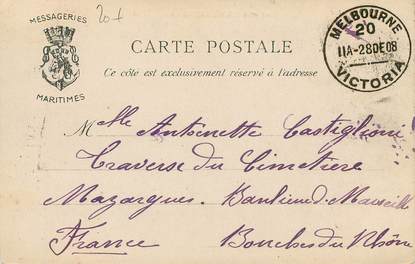 MESSAGERIES
MARITIMES
20f
CARTE POSTALE
Ce côté est exclusivement réservé à l'adresse
MELBOURNE
20
11A-28DE08
VICTORIA
Mlle Antoinette Castiglioni
Traverse du Cimetiere
Mazargues. Banlieue d. Marseille
France Bouches du Rhône